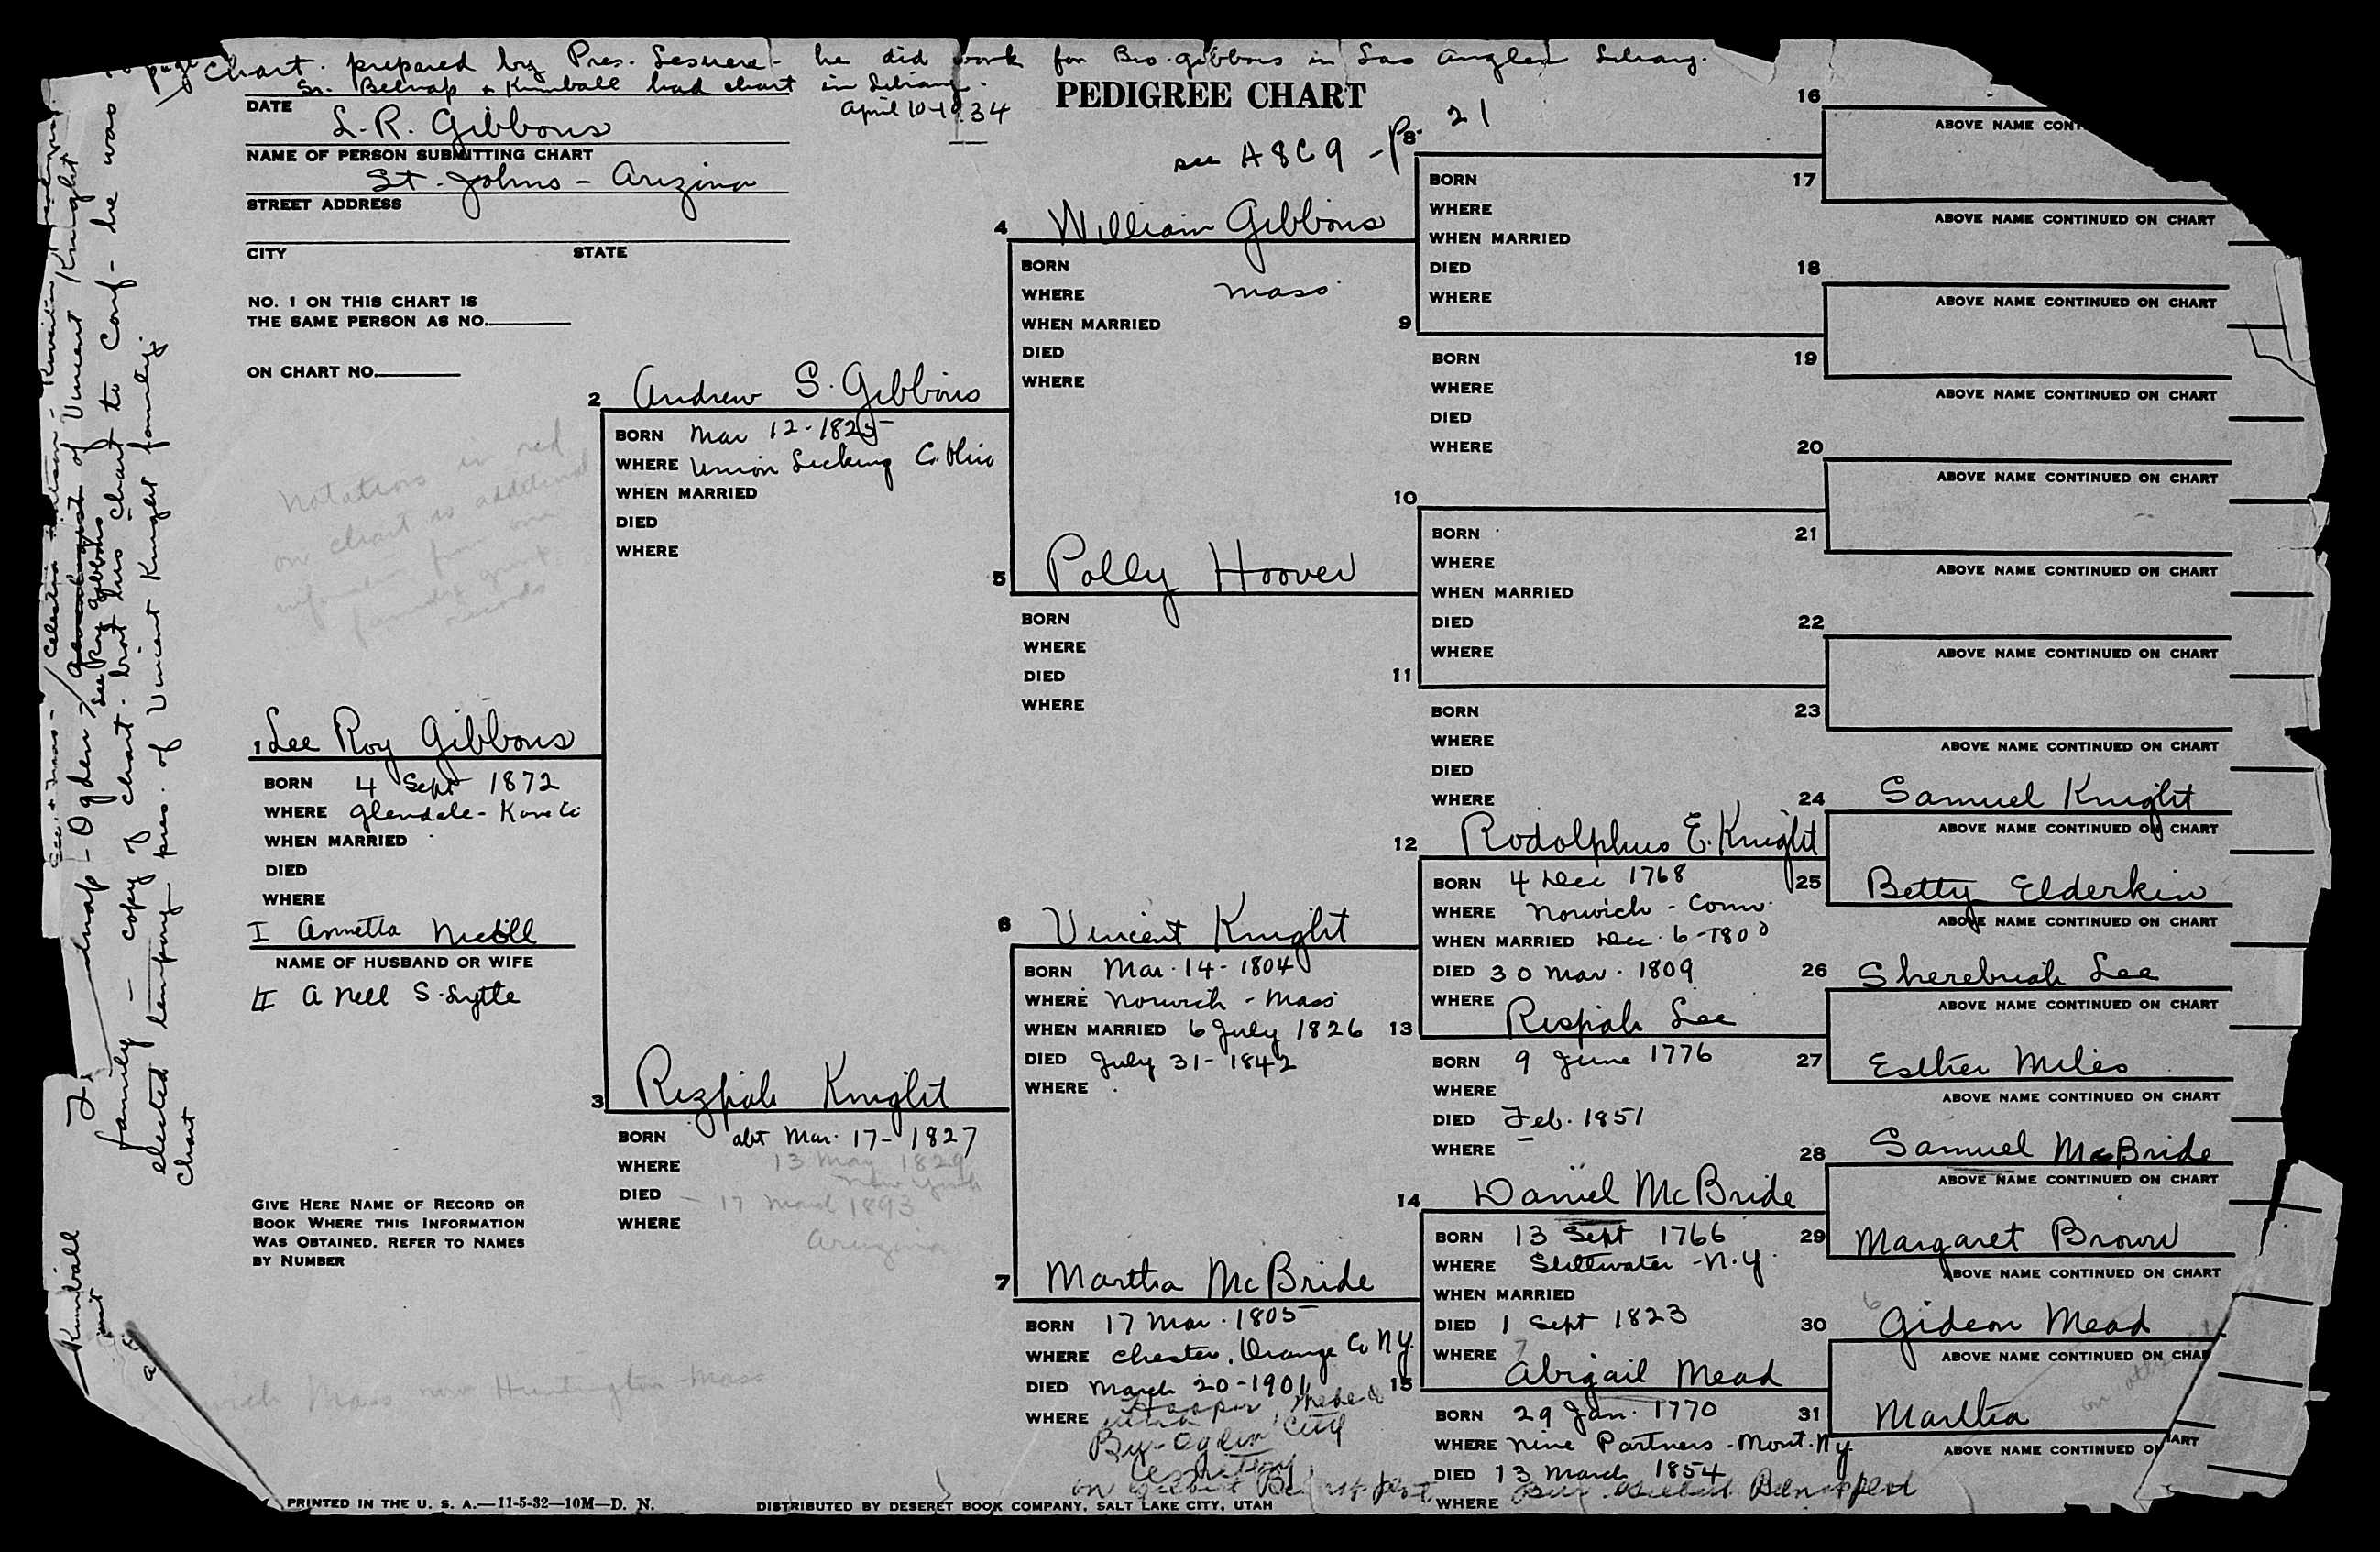 Chart. prepared by Pres. Lesuere - he did work for Bro. Gibbons in Los Angeles Library.
Sr. Belnap & Kimball had chart in Library.
April 10-1934
PEDIGREE CHART
see A8C9 - P8. 21
DATE
L. R. Gibbons
NAME OF PERSON SUBMITTING CHART
St. Johns - Arizona
STREET ADDRESS
CITY STATE
NO. 1 ON THIS CHART IS
THE SAME PERSON AS NO.
ON CHART NO.
Notations in red
on chart is additional
information from
family group
records
1 Lee Roy Gibbons
BORN 4 Sept 1872
WHERE Glendale - Kane Co
WHEN MARRIED
DIED
WHERE
I Annetta
NAME OF HUSBAND OR WIFE
II A Nell S. Lytle
GIVE HERE NAME OF RECORD OR
BOOK WHERE THIS INFORMATION
WAS OBTAINED. REFER TO NAMES
BY NUMBER
2 Andrew S. Gibbons
BORN Mar 12-1825
WHERE Union Licking C. Ohio
WHEN MARRIED
DIED
WHERE
3 Rizpah Knight
BORN abt Mar. 17-1827
13 May 1829
WHERE New York
DIED - 17 March 1893
WHERE Arizona
4 William Gibbons
BORN
WHERE Mass.
WHEN MARRIED
DIED
WHERE
5 Polly Hoover
BORN
WHERE
DIED
WHERE
6 Vincent Knight
BORN Mar. 14-1804
WHERE Norwich - Mass
WHEN MARRIED 6 July 1826
DIED July 31-1842
WHERE
7 Martha McBride
BORN 17 Mar. 1805
WHERE Chester, Orange Co N.Y.
DIED March 20-1901
WHERE Hooper, Weber Co
Utah
Bur- Ogden City
Cemetery
on Gilbert Belnap plot
8
BORN
WHERE
WHEN MARRIED
DIED
WHERE
9
BORN
WHERE
DIED
WHERE
10
BORN
WHERE
WHEN MARRIED
DIED
WHERE
11
BORN
WHERE
DIED
WHERE
12 Rodolphus E. Knight
BORN 4 Dec 1768
WHERE Norwich - Conn.
WHEN MARRIED Dec. 6-1800
DIED 30 Mar. 1809
WHERE
13 Rispah Lee
BORN 9 June 1776
WHERE
DIED Feb. 1851
WHERE
14 Daniel McBride
BORN 13 Sept 1766
WHERE Stillwater - N.Y.
WHEN MARRIED
DIED 1 Sept 1823
WHERE
15 Abigail Mead
BORN 29 Jan. 1770
WHERE Nine Partners - Mont. N.Y.
DIED 13 March 1854
WHERE Bur. Gilbert Belnap plot
16
ABOVE NAME CONT
17
ABOVE NAME CONTINUED ON CHART
18
ABOVE NAME CONTINUED ON CHART
19
ABOVE NAME CONTINUED ON CHART
20
ABOVE NAME CONTINUED ON CHART
21
ABOVE NAME CONTINUED ON CHART
22
ABOVE NAME CONTINUED ON CHART
23
ABOVE NAME CONTINUED ON CHART
24 Samuel Knight
ABOVE NAME CONTINUED ON CHART
25 Betty Elderkin
ABOVE NAME CONTINUED ON CHART
26 Sherebiah Lee
ABOVE NAME CONTINUED ON CHART
27 Esther Miles
ABOVE NAME CONTINUED ON CHART
28 Samuel McBride
ABOVE NAME CONTINUED ON CHART
29 Margaret Brown
ABOVE NAME CONTINUED ON CHART
30 Gideon Mead
ABOVE NAME CONTINUED ON CHAR
31 Martha
ABOVE NAME CONTINUED O ART
of Vincent Knight
see Roy Gibbons
family - copy of chart. brot this chart to Conf - he was
elected temporary pres. of Vincent Knight family.
chart
Kimball
Mass now Huntington Mass
PRINTED IN THE U. S. A.—11-5-32—10M—D. N.
DISTRIBUTED BY DESERET BOOK COMPANY, SALT LAKE CITY, UTAH